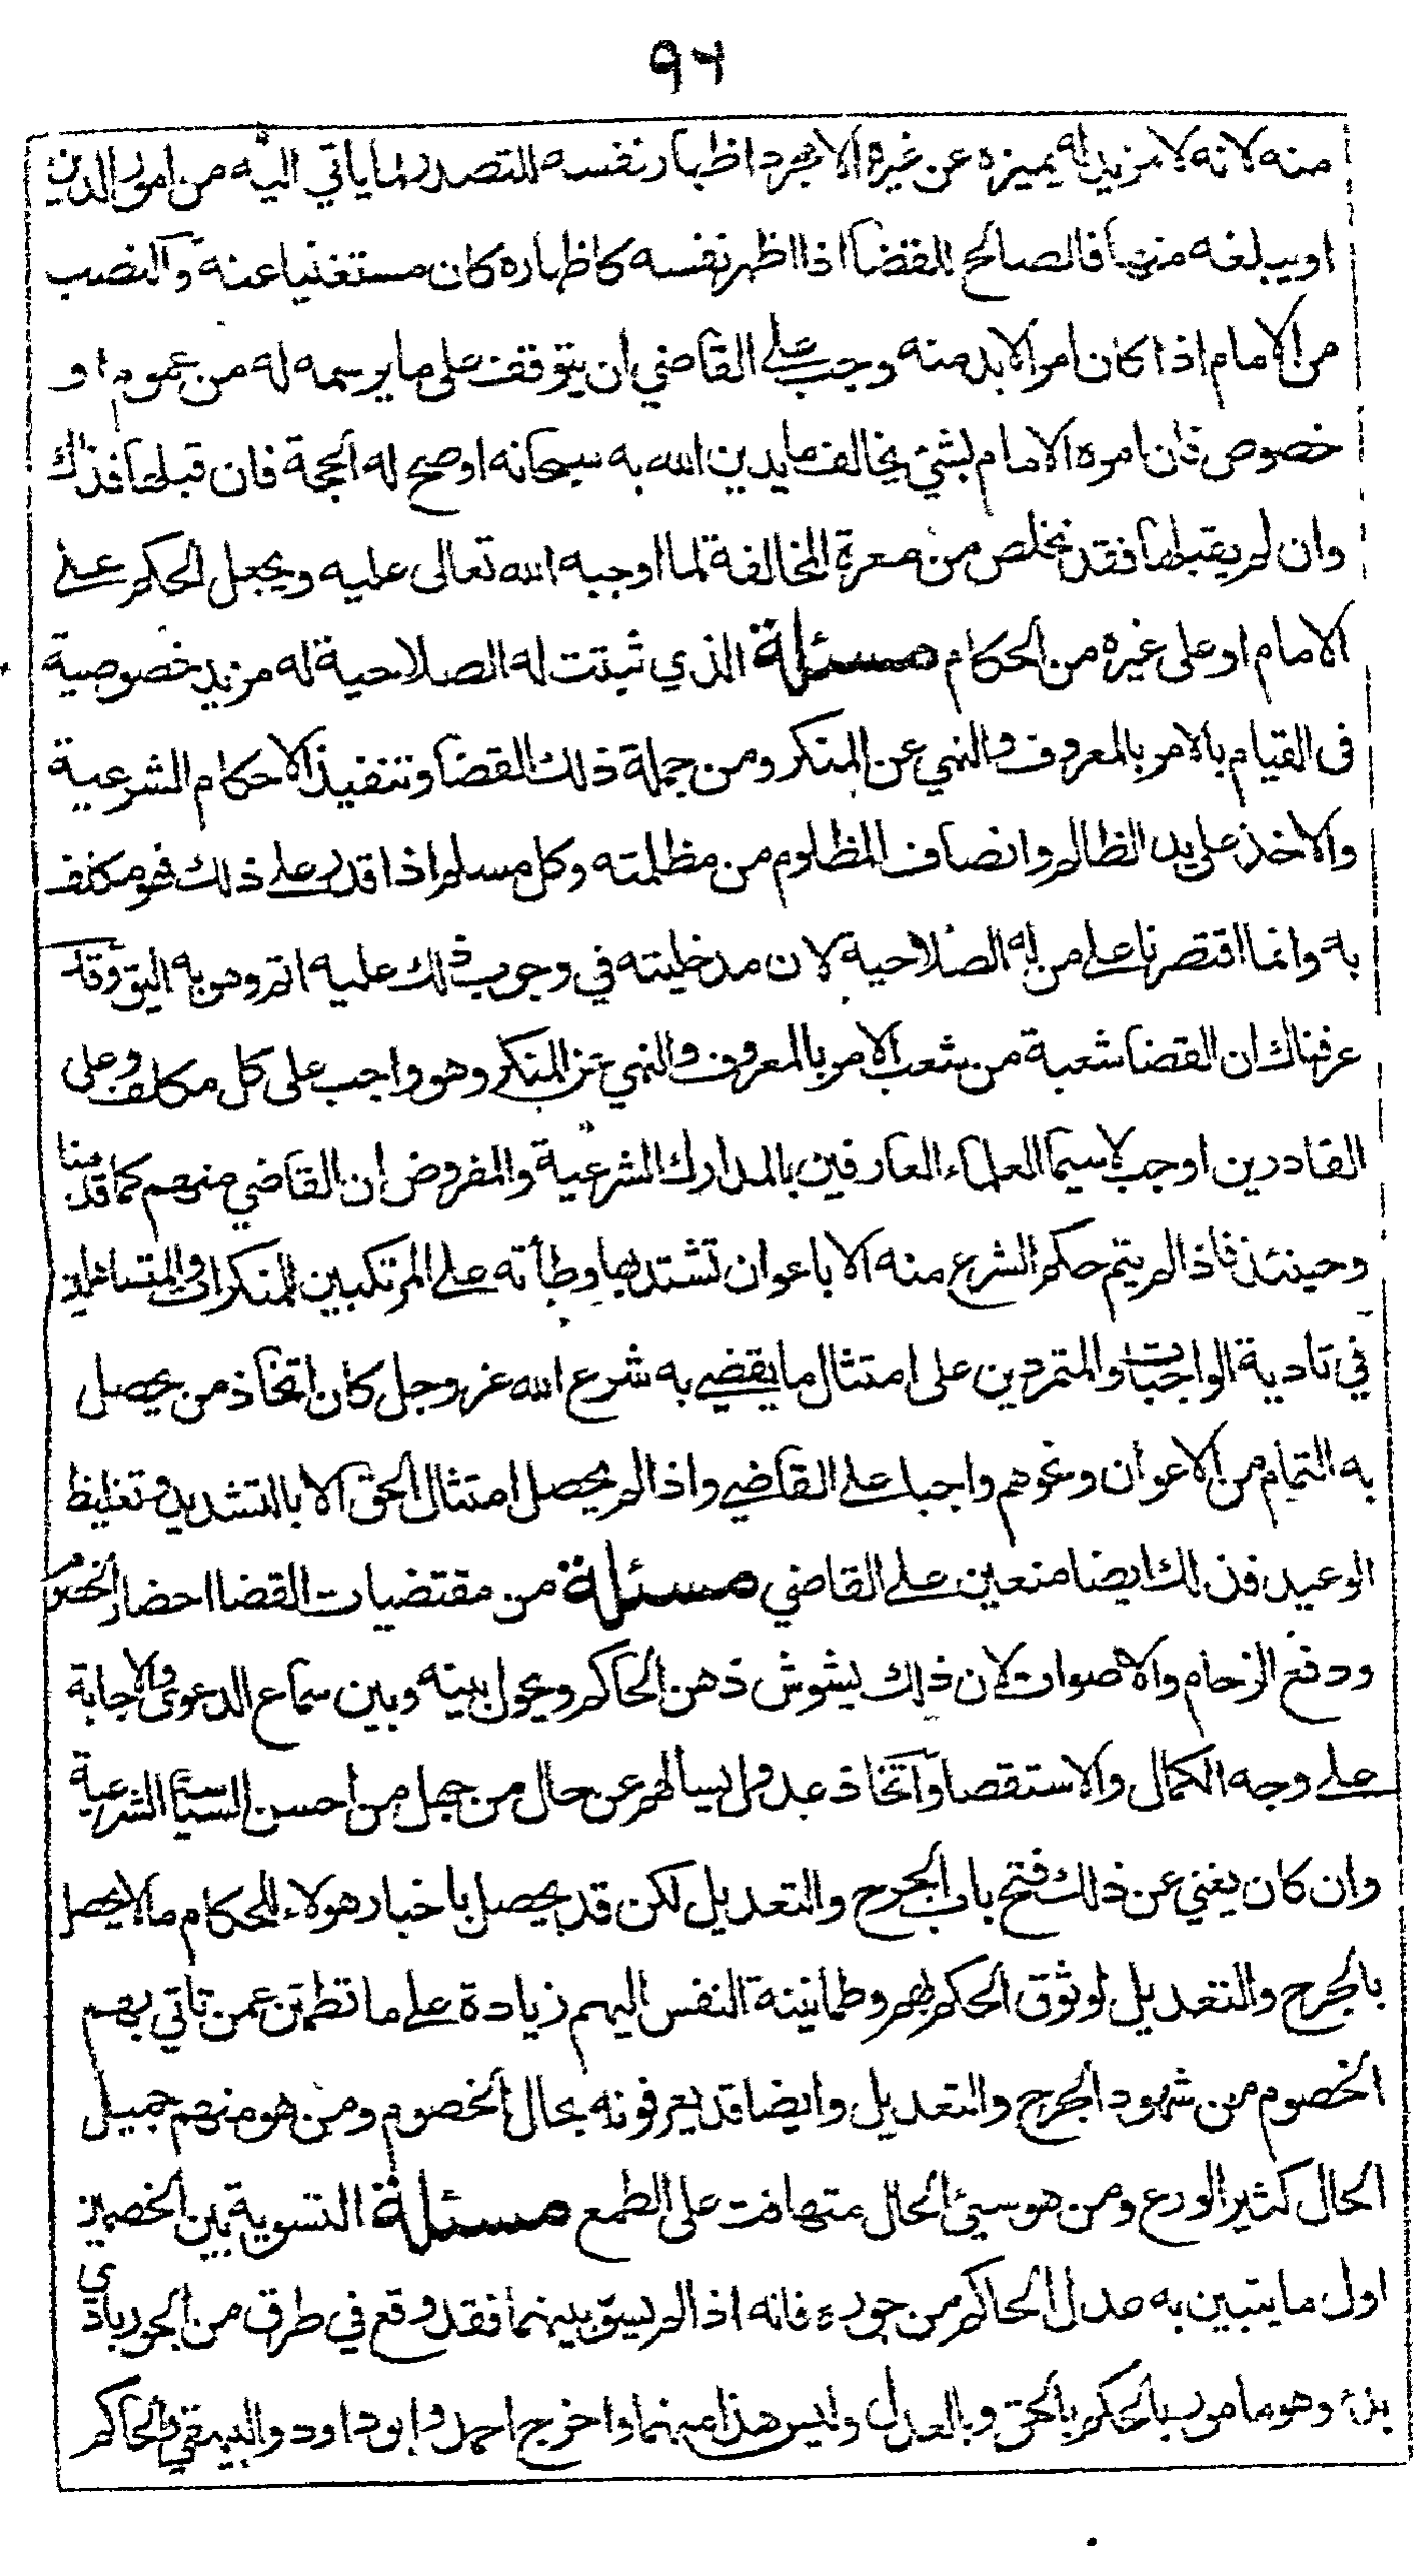 ٩٦
منه لانه لا مزيد له يميزه عن غيره الا مجرد اظهار نفسه للتصدر لما ياتي اليه من امور الدين
او يبلغه منها فالصالح للقضا اذا اظهر نفسه كاظهاره كان مستغنيا عنه والنصب
من الامام اذا كان امرا لابد منه وجب على القاضي ان يتوقف على ما يرسمه له من عموم او
خصوص فان امره الامام بشئ يخالف ما يدين الله به سبحانه اوضح له الحجة فان قبلها فذاك
وان لم يقبلها فقد تخلص من معرة المخالفة لما اوجبه الله تعالى عليه ويجعل الحكم على
الامام او على غيره من الحكام مسئلة الذي ثبتت له الصلاحية له مزيد خصوصية
فى القيام بالامر بالمعروف والنهي عن المنكر ومن جملة ذلك القضا وتنفيذ الاحكام الشرعية
والاخذ على يد الظالم وانصاف المظلوم من مظلمته وكل مسلم اذا قدر على ذلك فهو مكلف
به وانما اقتصرنا على من له الصلاحية لان مدخليته في وجوب ذلك عليه اتم وهو به اليق وقد
عرفناك ان القضا شعبة من شعب الامر بالمعروف والنهي عن المنكر وهو واجب على كل مكلف وعلى
القادرين اوجب لاسيما العلماء العارفين بالمدارك الشرعية والمفروض ان القاضي منهم كما قدمنا
وحينئذ فاذا لم يتم حكم الشرع منه الا باعوان تشتد بها وطأته على المرتكبين للمنكرات والمتساهلين
في تادية الواجبات والمتمردين على امتثال ما يقضي به شرع الله عز وجل كان اتخاذ من يحصل
به التمام من الاعوان ونحوهم واجبا على القاضي واذا لم يحصل امتثال الحق الا بالتشديد وتغليظ
الوعيد فذلك ايضا متعين على القاضي مسئلة من مقتضيات القضا احضار الخصوم
ودفع الزحام والاصوات لان ذلك يشوش ذهن الحاكم ويحول بينه وبين سماع الدعوى والاجابة
على وجه الكمال والاستقصا واتخاذ عدول يسالهم عن حال من جهل من احسن السياسات الشرعية
وان كان يغني عن ذلك فتح باب الجرح والتعديل لكن قد يحصل باخبار هولاء للحكام ما لا يحصل
بالجرح والتعديل لوثوق الحكم بهم وطمانينة النفس اليهم زيادة على ما تطمئن عمن تاتي بهم
الخصوم من شهود الجرح والتعديل وايضا قد يعرفونه بحال الخصوم ومن هو منهم جميل
الحال كثير الورع ومن هو سيئ الحال متهافت على الطمع مسئلة التسوية بين الخصمين
اول ما يتبين به عدل الحاكم من جوره فانه اذا لم يسوّ بينهما فقد وقع في طرق من الجور بادي
بدء وهو مامور بالحكم بالحق وبالعدل وليس هذا منهما واخرج احمد وابو داود والبيهقي والحاكم